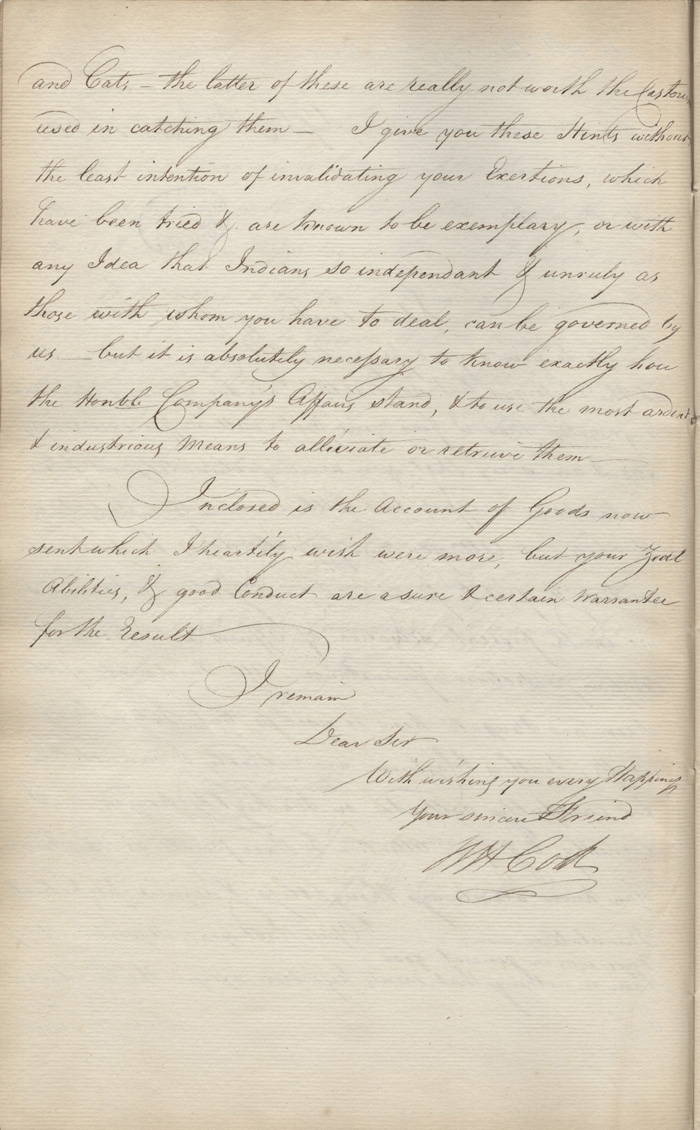 and Cats – the latter of these are really not worth the Castorum
used in catching them – I give you these Hints without
the least intention of invalidating your Exertions, which
have been tried & are known to be exemplary, or with
any Idea that Indians so independant & unruly as
those with whom you have to deal, can be governed by
us but it is absolutely necessary to know exactly how
the Honble Company's Affairs stand, & to use the most ardent
& industrious Means to alleviate or retrieve them
Inclosed is the Account of Goods now
sent which I heartily wish were more, but your Zeal
Abilities, & good Conduct are a sure & certain Warrantee
for the Result
I remain
Dear Sir
With wishing you every Happiness
Your sincere Friend
W H Cook